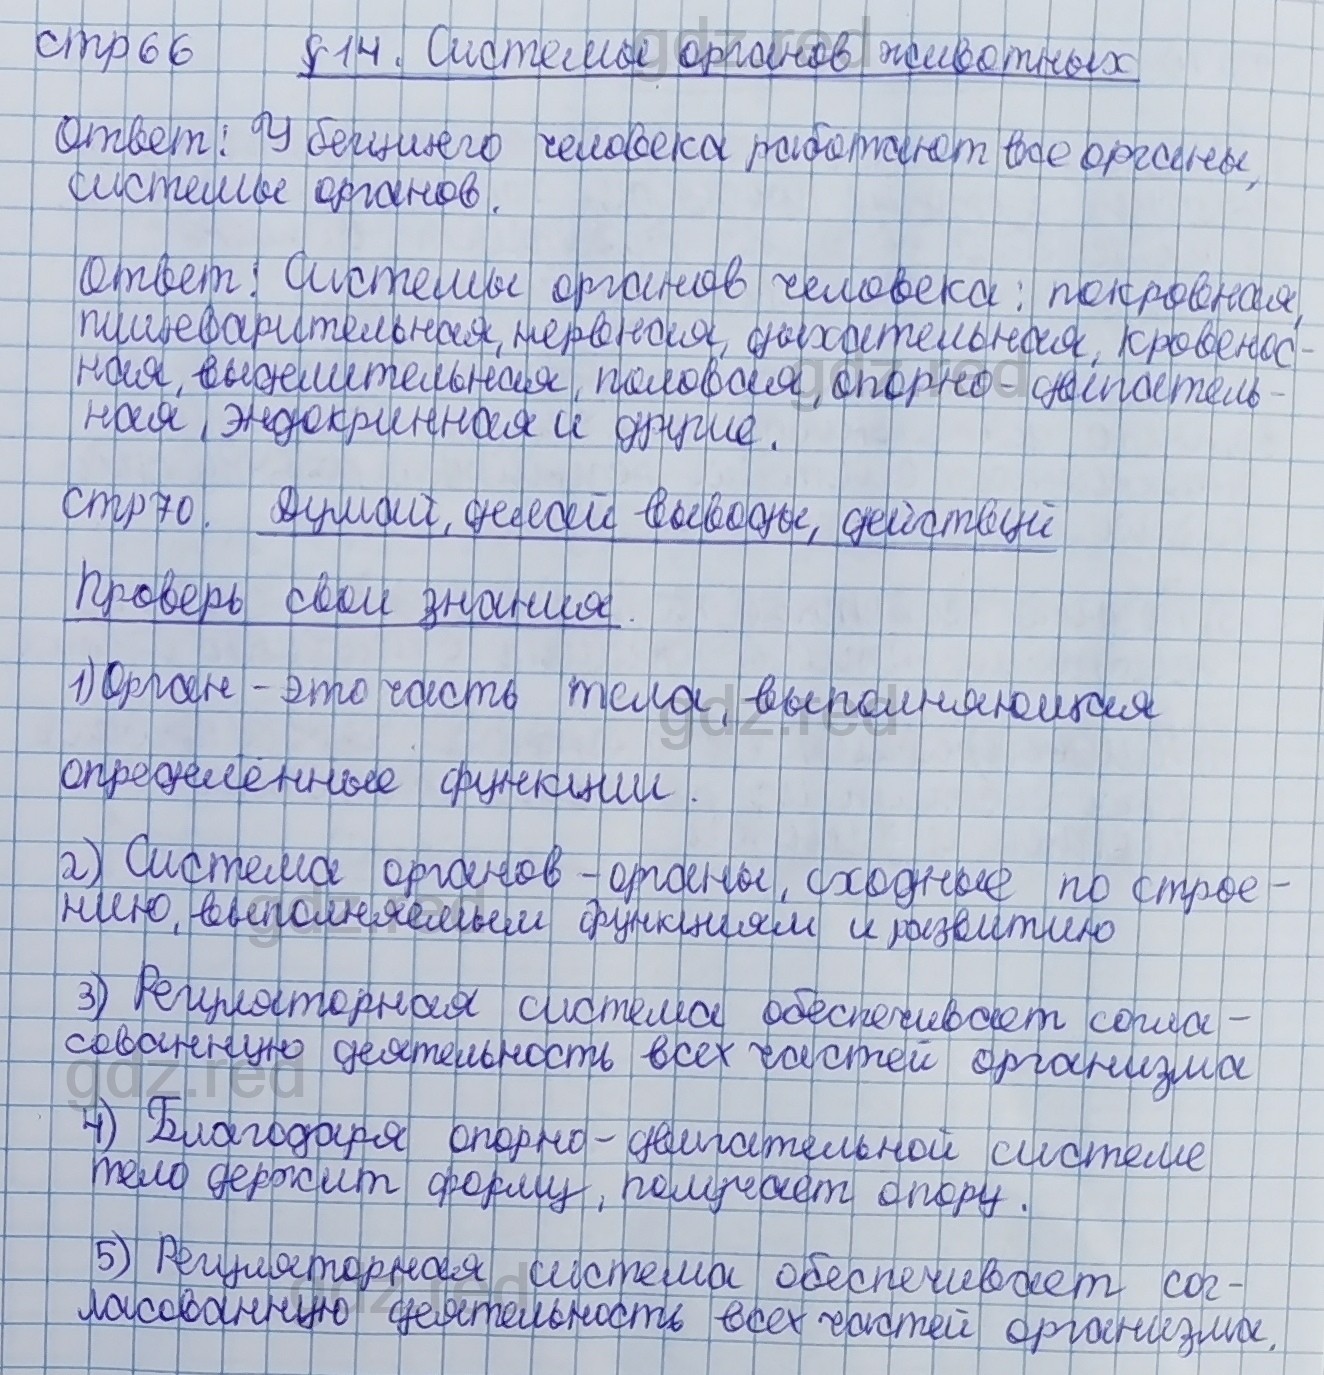 стр 66 § 14. Системы органов животных
Ответ: У бегущего человека работают все органы,
системы органов.
Ответ: Системы органов человека: покровная,
пищеварительная, нервная, дыхательная, кровенос-
ная, выделительная, половая, опорно-двигатель-
ная, эндокринная и другие.
стр 70. Думай, делай выводы, действуй
Проверь свои знания.
1) Орган - это часть тела, выполняющая
определённые функции.
2) Система органов - органы, сходные по строе-
нию, выполняемым функциям и развитию
3) Регуляторная система обеспечивает согла-
сованную деятельность всех частей организма
4) Благодаря опорно-двигательной системе
тело держит форму, получает опору.
5) Регуляторная система обеспечивает сог-
ласованную деятельность всех частей организма.
gdz.red
gdz.red
gdz.red
gdz.red
gdz.red
gdz.red